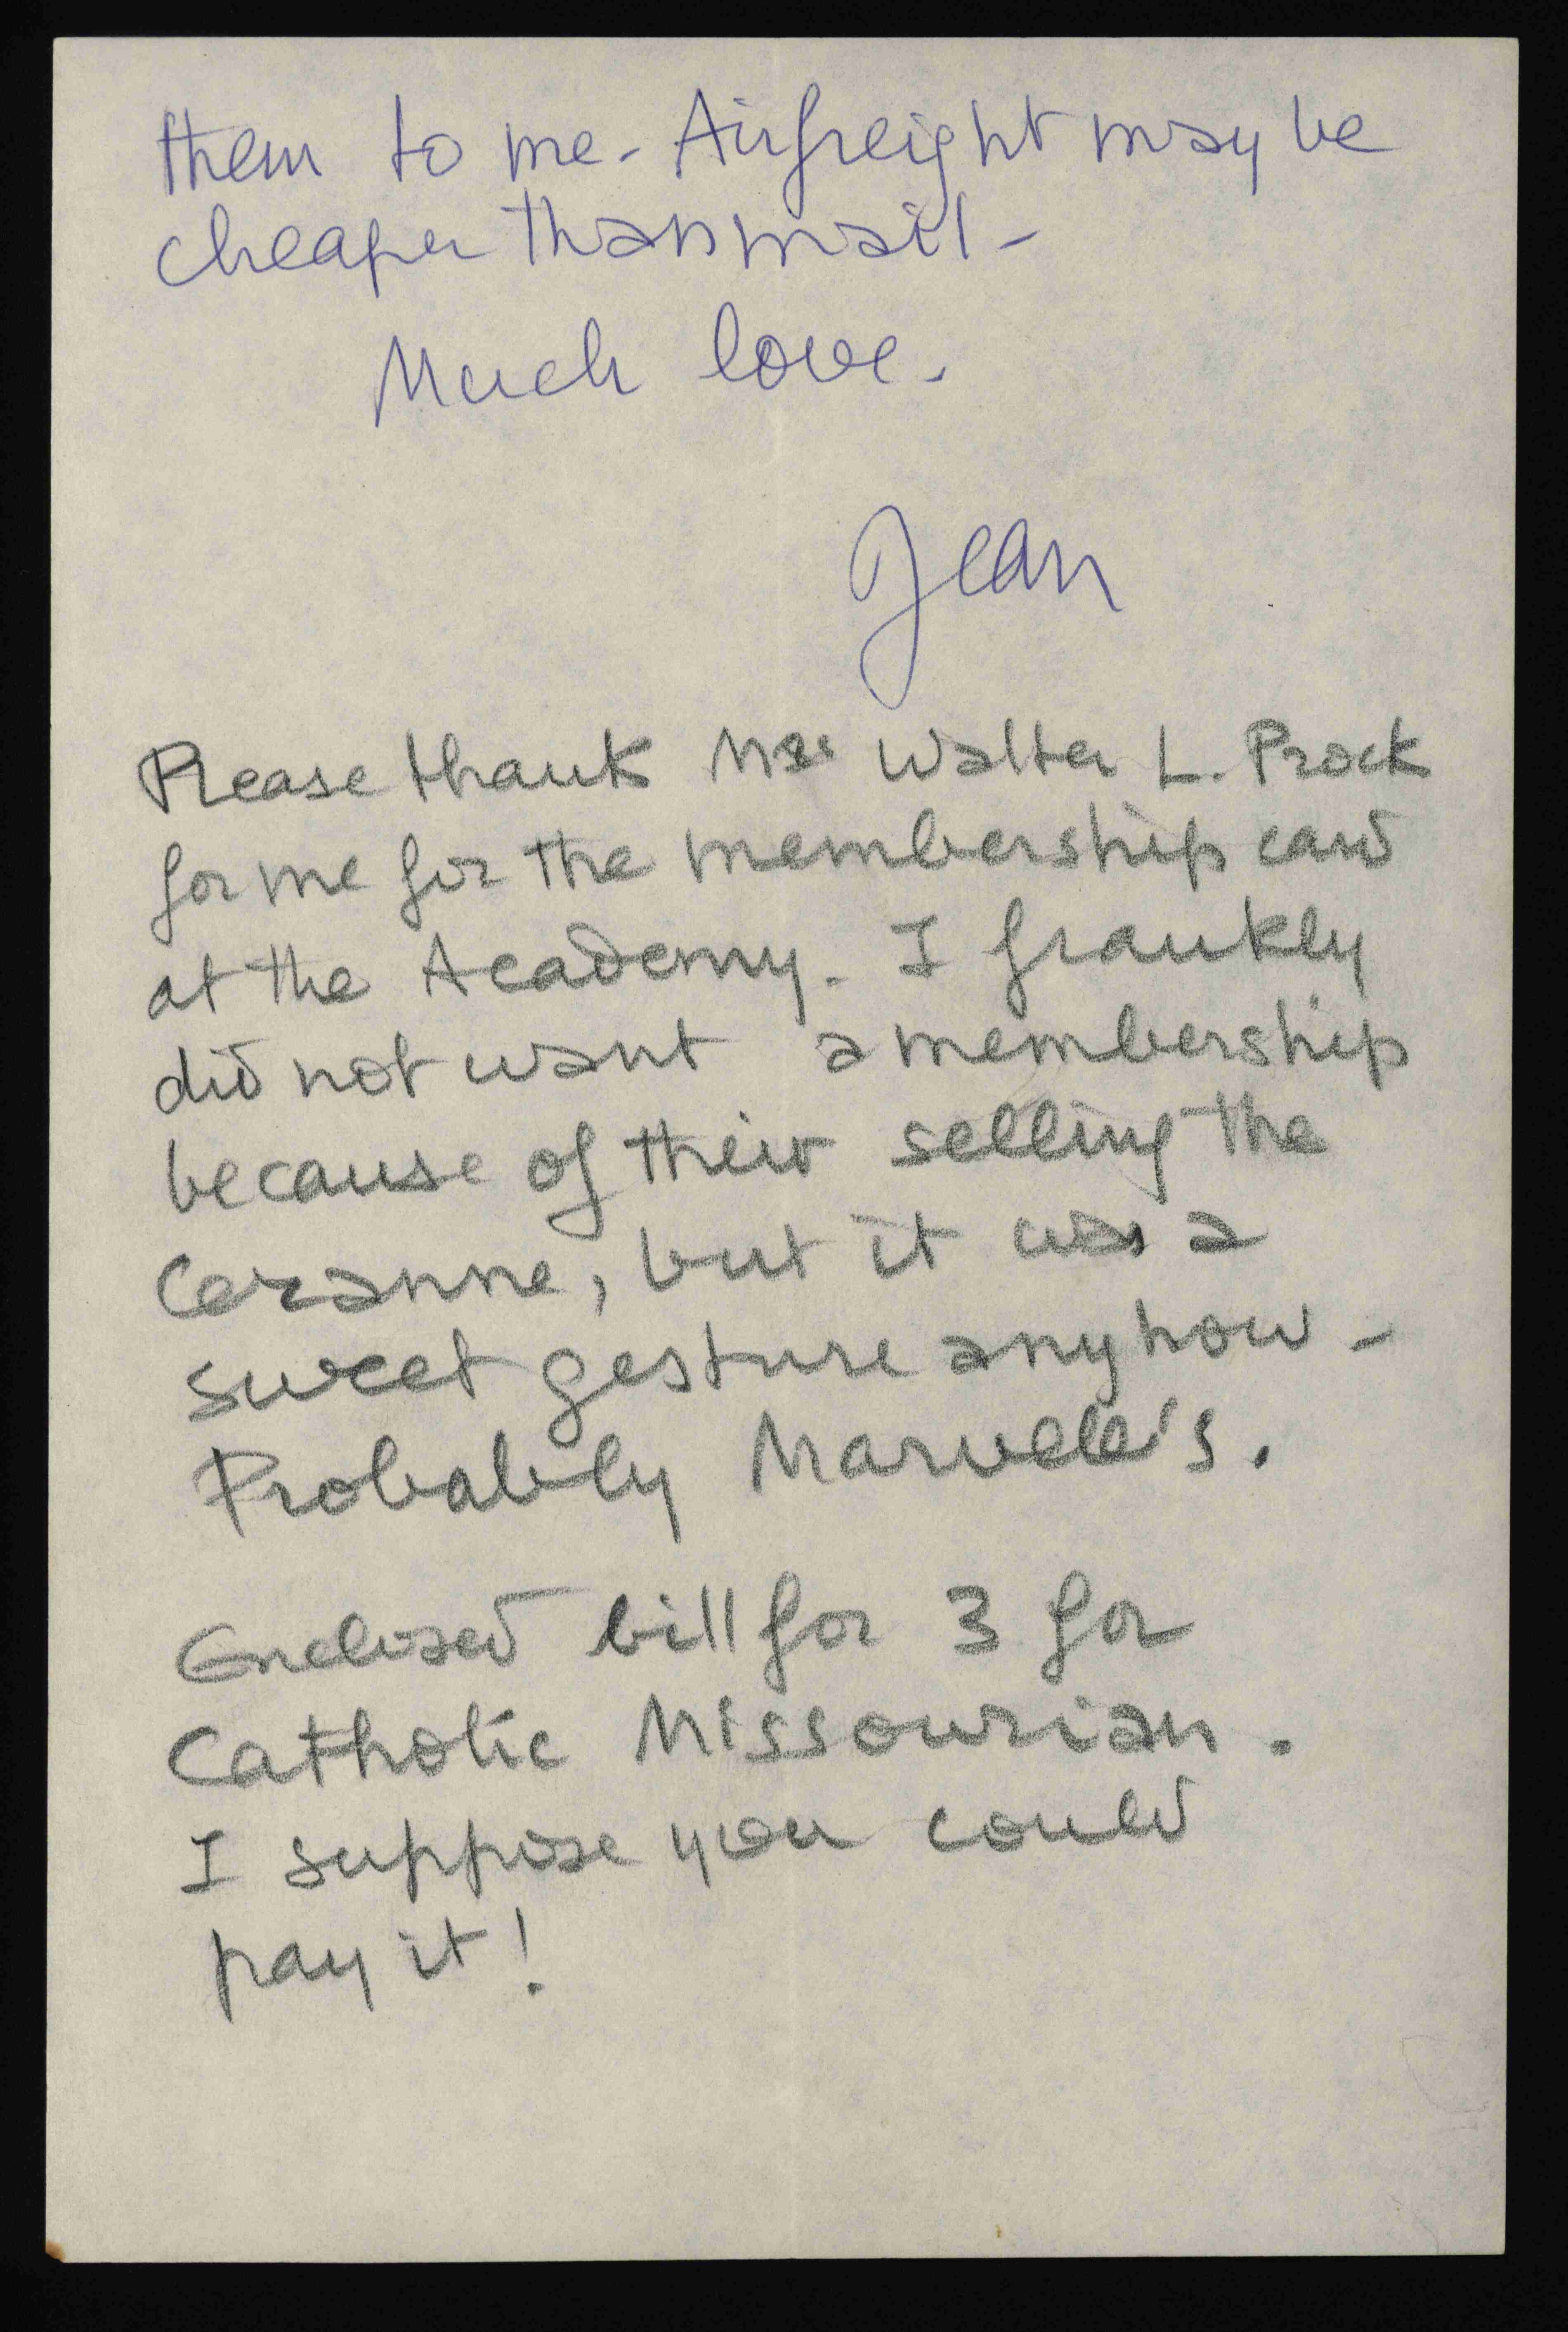 them to me - Airfreight may be
cheaper than mail -
Much love.
Jean
Please thank Mrs Walter L. Prock
for me for the membership card
at the Academy. I frankly
did not want a membership
because of their selling the
Cezanne, but it was a
sweet gesture anyhow -
Probably Marvelle's.
Enclosed bill for 3 for
Catholic Missourian.
I suppose you could
pay it!